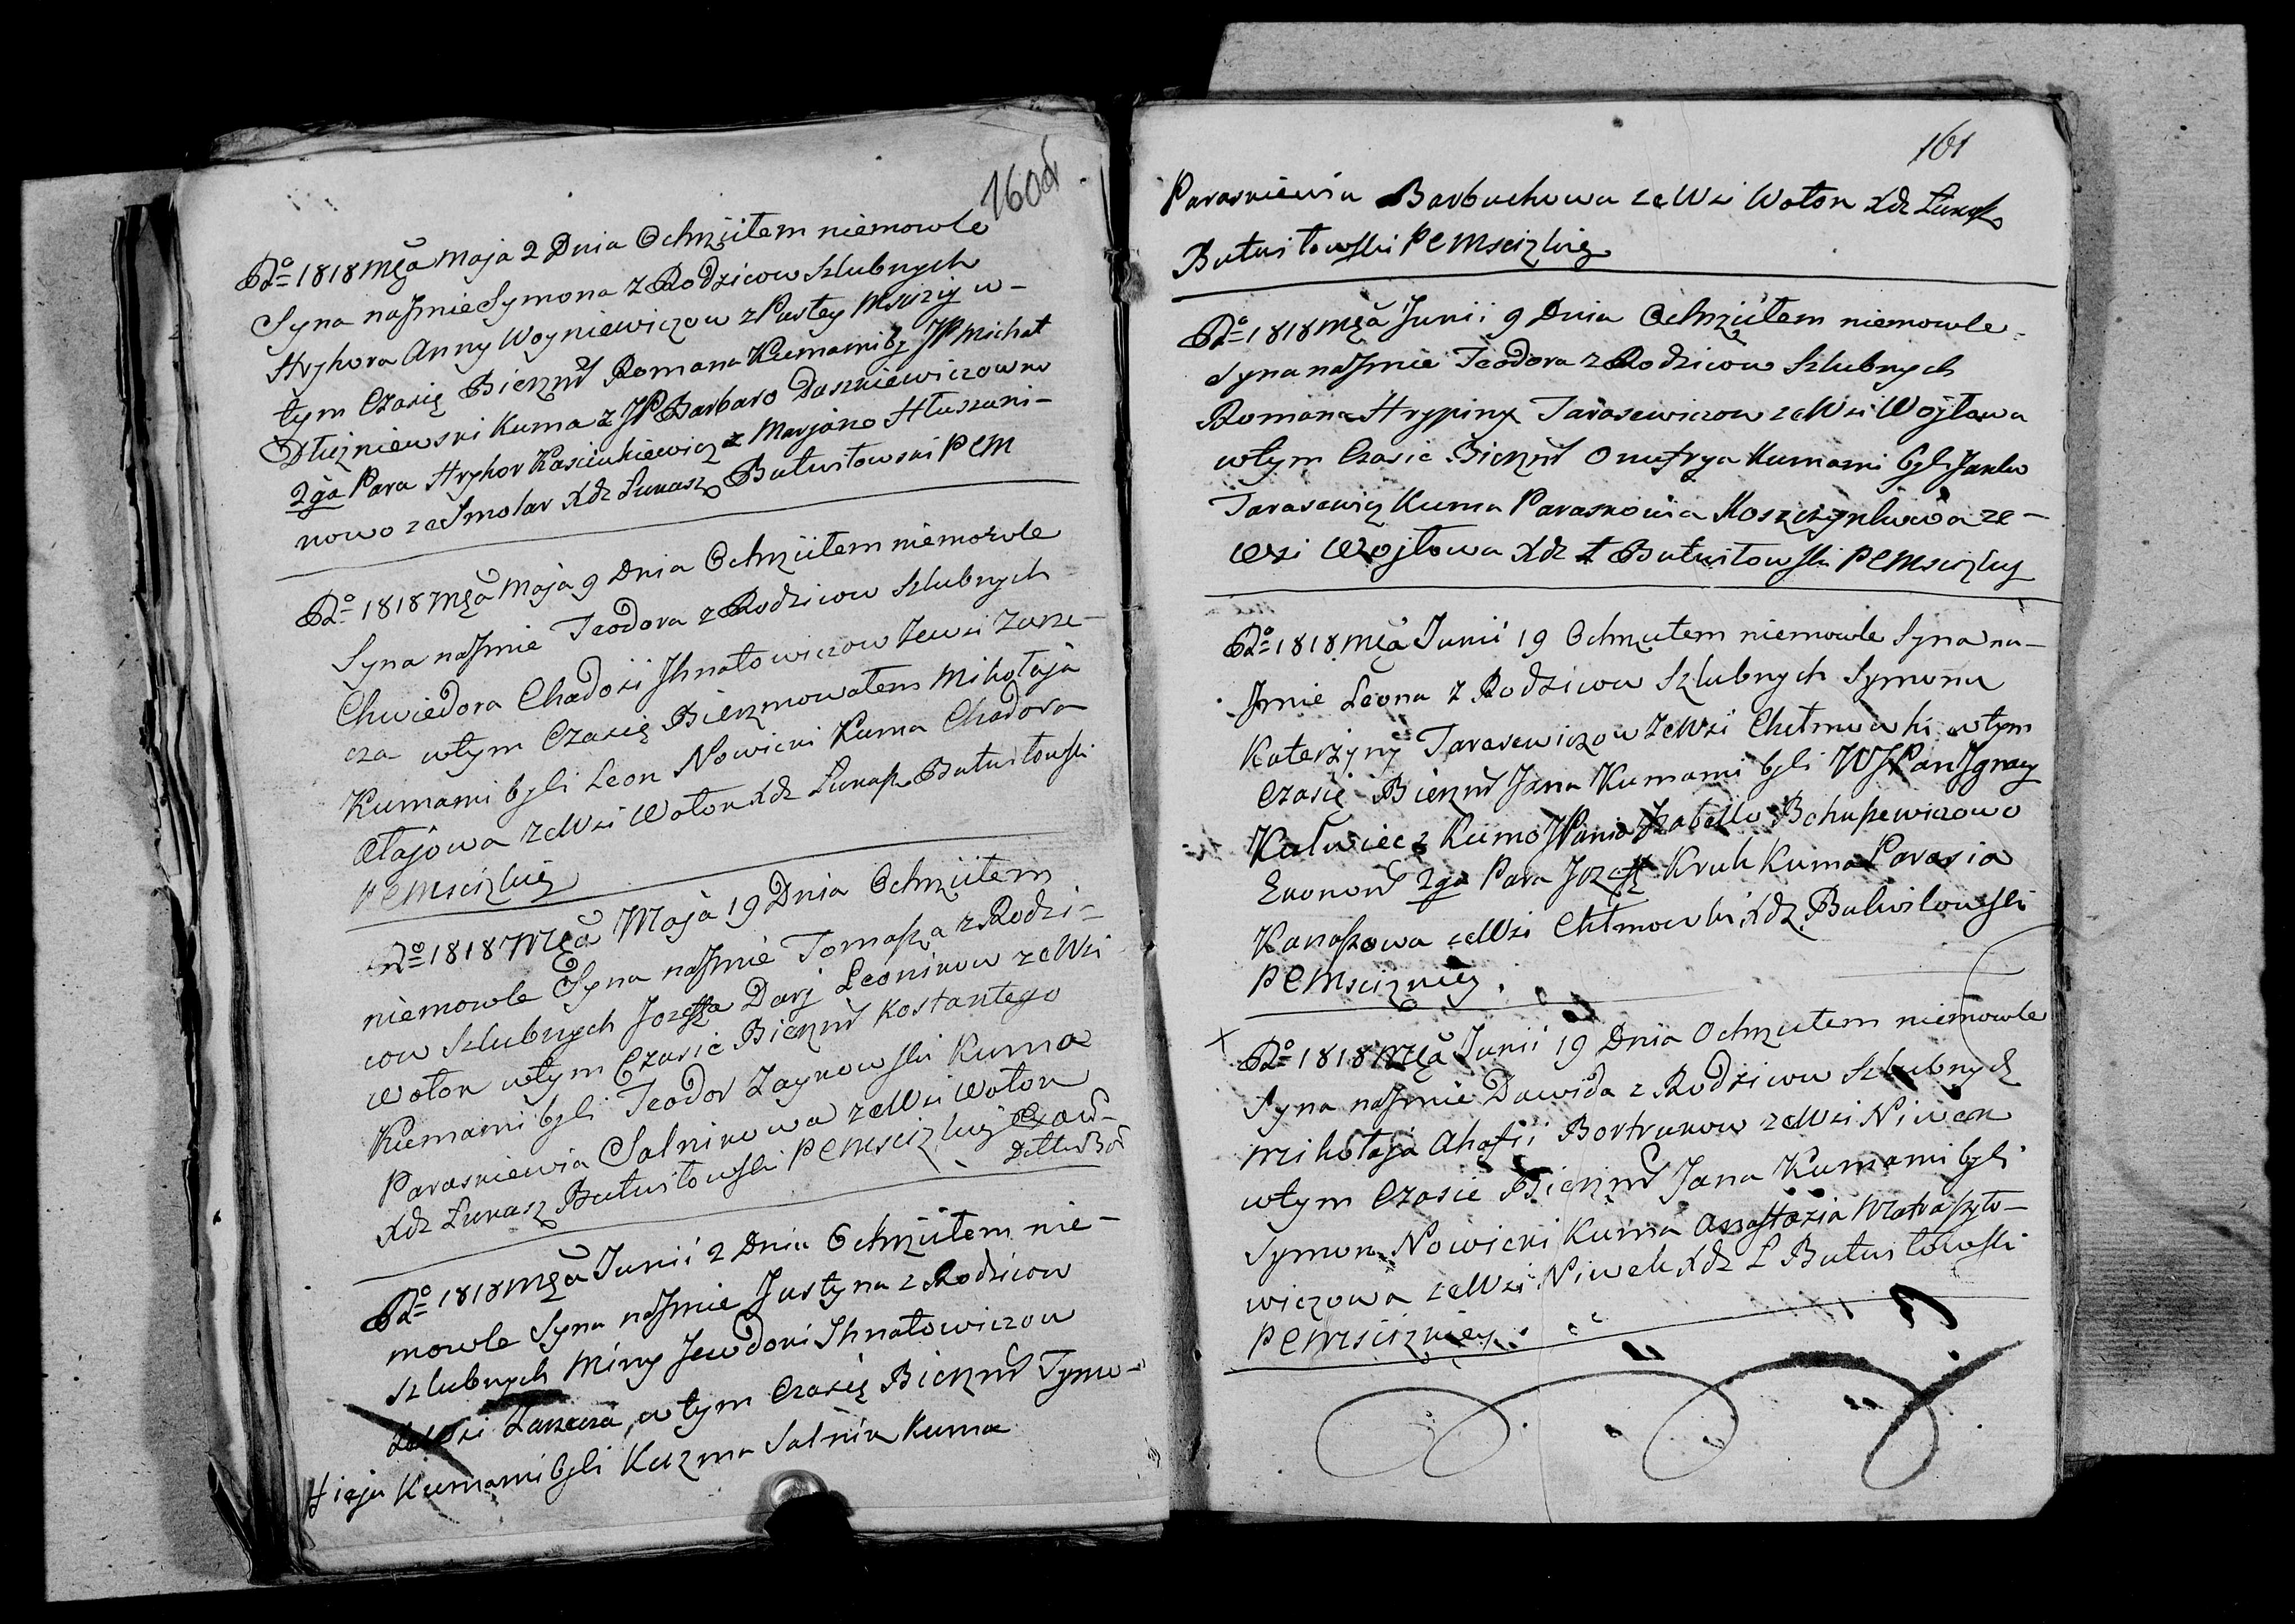 160об
Rº 1818 Mca Maja 2 Dnia Ochrzciłem niemowle
Syna naJmie Symona z Rodzicow Szlubnych
Hryhora Anny Woyniewiczow z Pustey Mscizy w-
tym Czasię Bierzm Romana Kumami by JP Michał
Kuma z JP Barbaro Daszkiewiczowno
2ga Para Hryhor Kasciukiewicz z Marjano Hłuszani-
nowo ze Smolar Xdz Łukasz Butwiłowski PCM
Rº 1818 Mca Maja 9 Dnia Ochrzciłem niemowle
Syna naJmie Teodora z Rodzicow Szlubnych
Chwiedora Chadosi Jhnatowiczow zewsi Zarze-
cza wtym Czasię Bierzmowałem Mikołaja
Kumami byli Leon Nowicki Kuma Chadora
zeWsi Wołok Xdz Łukasz Butwiłowski
PCMscizkię
Rº 1818 Mca Maja 19 Dnia Ochrzciłem
niemowle Syna naJmie Tomasza z Rodzi-
cow Szlubnych Jozefa Darj Leonikow zeWsi
Wołok wtym Czasie Bierzm Kostantego
Kumami byli Teodor Zaynowski Kuma
Paraskiewia Salnikowa zeWsi Wołok
Xdz Łukasz Butwiłowski PCMscizkiy
Rº 1818 Mca Junii 2 Dnia Ochrzciłem nie-
mowle Syna naJmie Justyna z Rodzicow
Szlubnych Miny Jewdoki Jhnatowiczow
zeWsi Zarzecza, wtym Czasię Bierzm Tymo-
Kumami byli Kuzma Salnik Kuma
161
Paraskiewia Barbuchowa zeWsi Wołok Xdz Łukasz
Butwiłowski PCMscizkię
Rº 1818 Mca Junii 9 Dnia Ochrzciłem niemowle
Syna naJmie Teodora z Rodzicow Szlubnych
Romana Hrypiny Tarasewiczow zeWsi Wojtowa
wtym Czasie Bierzm Onufrya Kumami byli Janko
Tarasewicz Kuma Paraskowia ze-
Wsi Wojtowa Xdz Ł Butwiłowski PCMscizkiy
Rº 1818 Mca Junii 19 Ochrzciłem niemowle Syna na-
Jmie Leona z Rodzicow Szlubnych Symona
Katerzyny Tarasewiczow zeWsi Chełmowki wtym
Czasię Bierzm Jana Kumami byli WJPan Jgnacy
Kulwiec z Kumo JPanio Jzabello Bohuszewiczowo
Ekonom 2ga Para Jozef Kruk Kuma Parasia
Kanaszowa zeWsi Chłmowki Xdz Butwilowski
PCMscizkiey
x
Rº 1818 Mca Junii 19 Dnia Ochrzciłem niemowle
Syna naJmie Dawida z Rodzicow Szlubnych
Mikołaja Ahafii Bortrukow zeWsi Niwek
wtym Czasie Bierzm Jana Kumami byli
Symon Nowicki Kuma Anastazia Matraszyło-
wiczowa zeWsi Niwek Xdz L Butwiłowski
PCMscizkiey